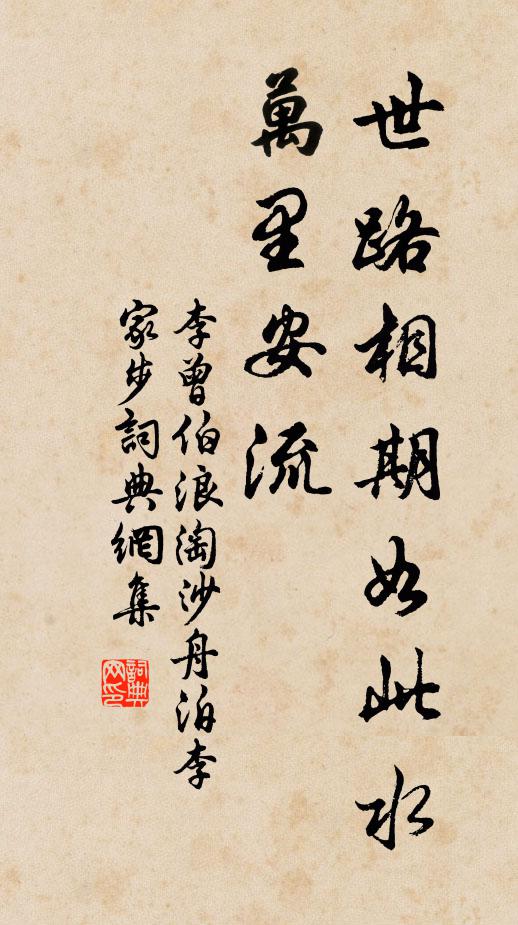 世路相期如此水
萬里安流
李曾伯浪淘沙舟泊李
家步詞典網集
詞典
网印